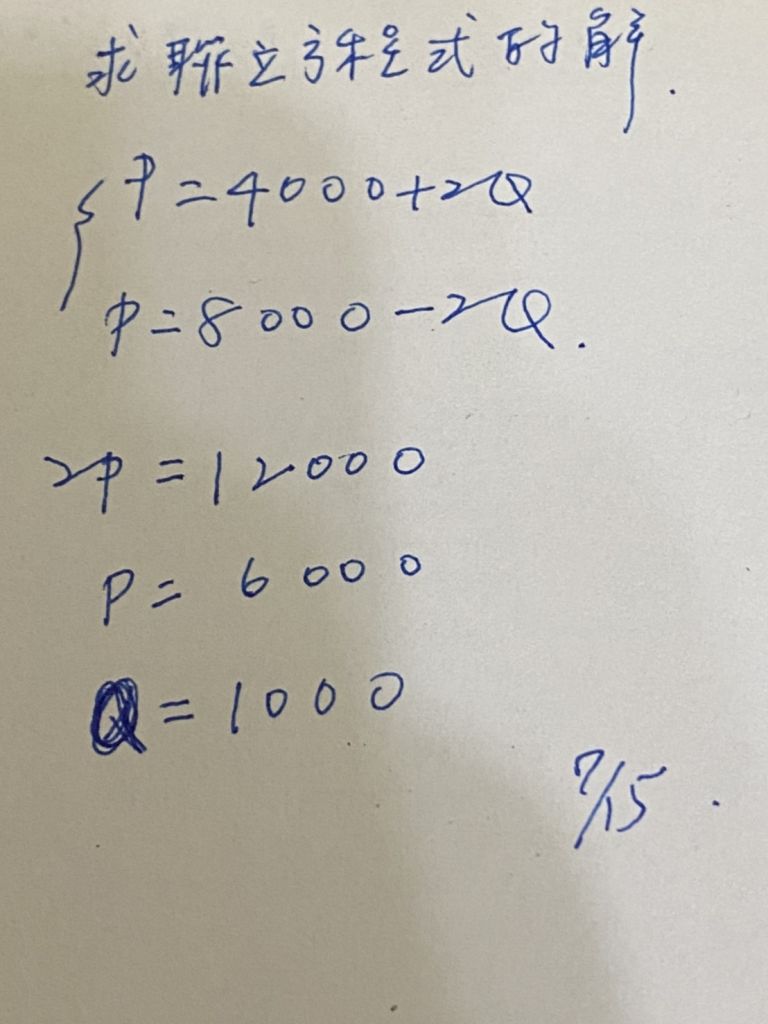 求聯立方程式的解.
{ P=4000+2Q
P=8000-2Q.
2P=12000
P=6000
Q=1000
7/15.